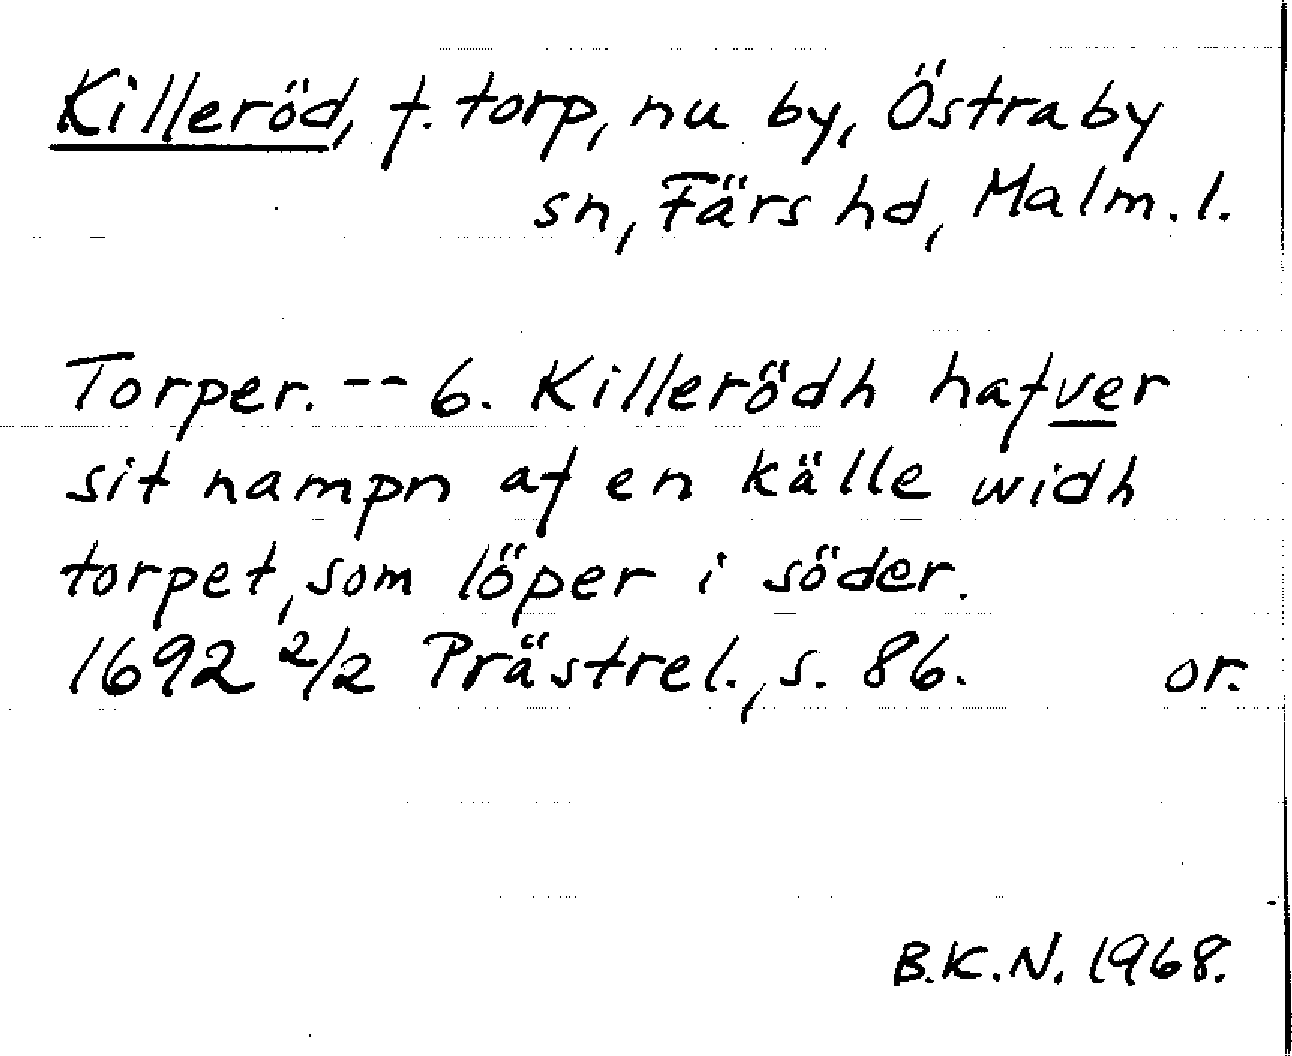 Killeröd, f. torp, nu by, Östraby
sn, Färs hd, Malm. l.
Torper. -- 6. Killerödh hafver
sit nampn af en källe widh
torpet, som löper i söder.
1692 2/2 Prästrel., s. 86. or.
B.K.N. 1968.